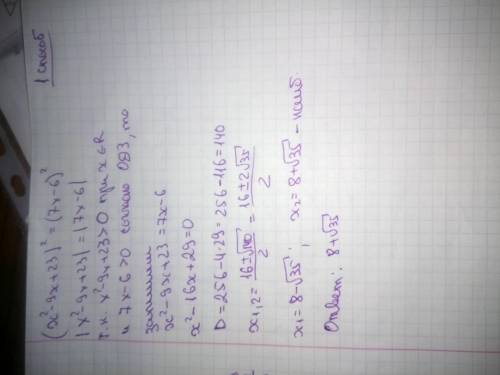 1 способ
(x²-9x+23)² = (7x-6)²
|x²-9x+23| = |7x-6|
т.к. x²-9x+23>0 при x∈R
и 7x-6>0 согласно ОДЗ, то
запишем
x²-9x+23=7x-6
x²-16x+29=0
D=256-4·29=256-116=140
x₁,₂ = (16±√140)/2 = (16±2√35)/2
x₁=8-√35; x₂=8+√35 - наиб.
Ответ: 8+√35